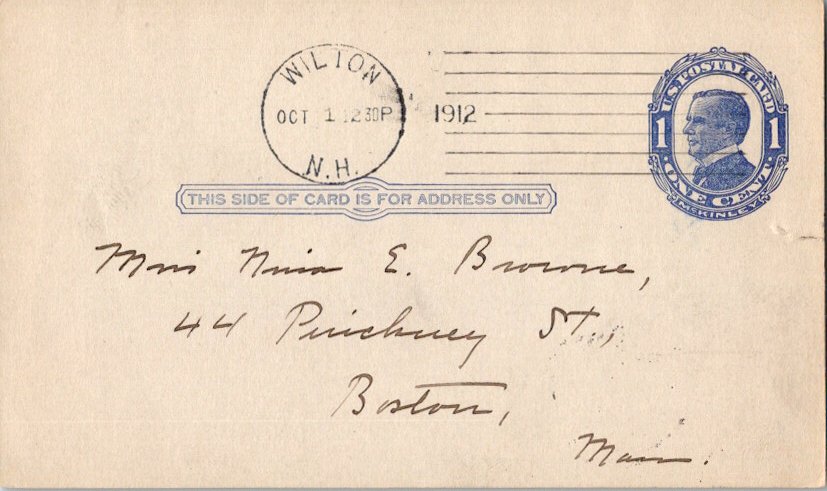 WILTON
OCT 1 1230P 1912
N.H.
U.S. POSTAL CARD
1 1
ONE CENT
McKINLEY
THIS SIDE OF CARD IS FOR ADDRESS ONLY
Miss Nina E. Browne,
44 Pinckney St.,
Boston,
Mass.